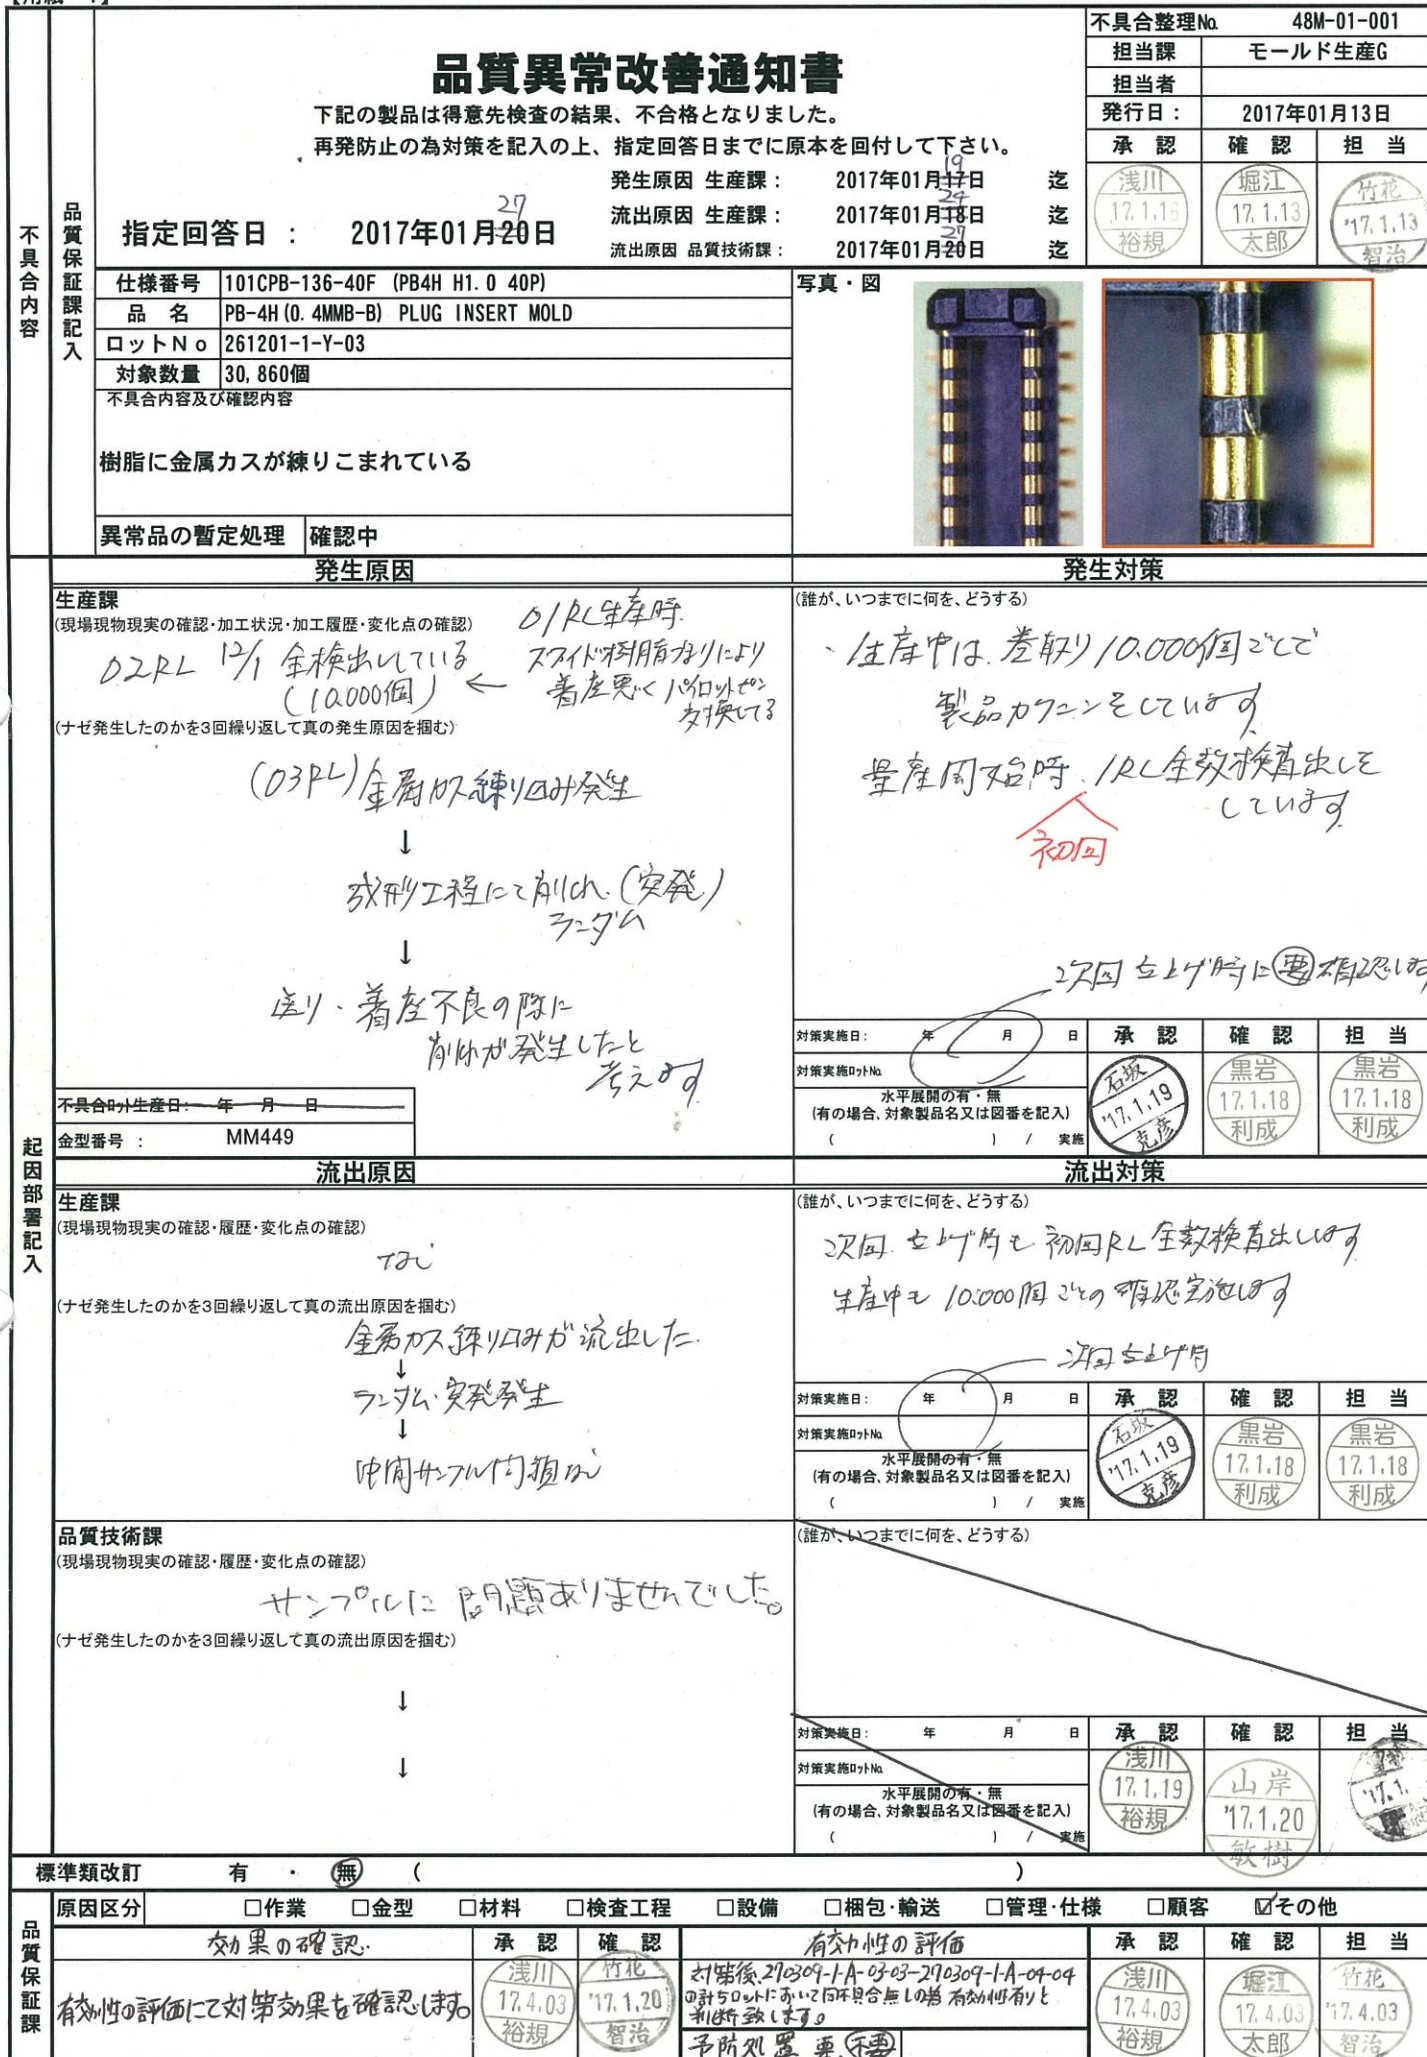 不具合整理No. 48M-01-001
担当課 モールド生産G
担当者
発行日： 2017年01月13日
承認 確認 担当
浅川 17.1.16 裕規
堀江 17.1.13 太郎
竹花 '17.1.13 智治
品質異常改善通知書
下記の製品は得意先検査の結果、不合格となりました。
再発防止の為対策を記入の上、指定回答日までに原本を回付して下さい。
発生原因 生産課： 2017年01月17日 迄
19
流出原因 生産課： 2017年01月18日 迄
24
流出原因 品質技術課： 2017年01月20日 迄
27
指定回答日 ： 2017年01月20日
27
不具合内容
品質保証課記入
仕様番号 101CPB-136-40F (PB4H H1.0 40P)
品名 PB-4H(0.4MMB-B) PLUG INSERT MOLD
ロットNo 261201-1-Y-03
対象数量 30,860個
不具合内容及び確認内容
樹脂に金属カスが練りこまれている
異常品の暫定処理 確認中
写真・図
起因部署記入
発生原因
生産課
(現場現物現実の確認・加工状況・加工履歴・変化点の確認)
01RL生産時
スライド樹脂づまりにより
着座悪く パイロットピン
交換してる
02RL 12/1 全検出している
(10.000個) ←
(ナゼ発生したのかを3回繰り返して真の発生原因を掴む)
(03RL)金属カス練り込み発生
↓
成形工程にて削れ.(突発)
ランダム
↓
送り・着座不良の際に
削れが発生したと
考えます
不具合ロット生産日： 年 月 日
金型番号 ： MM449
発生対策
(誰が、いつまでに何を、どうする)
・生産中は、巻取り10.000個ごとで
製品カクニンをしています
量産開始時、1RL全数検査出しを
しています
初回
次回立上げ時に要確認します
対策実施日： 年 月 日
対策実施ロットNo.
水平展開の有・無
(有の場合、対象製品名又は図番を記入)
( ) / 実施
承認 確認 担当
石坂 '17.1.19 克彦
黒岩 17.1.18 利成
黒岩 17.1.18 利成
流出原因
生産課
(現場現物現実の確認・履歴・変化点の確認)
なし
(ナゼ発生したのかを3回繰り返して真の流出原因を掴む)
金属カス練り込みが流出した.
↓
ランダム・突発発生
↓
中間サンプル問題なし
流出対策
(誰が、いつまでに何を、どうする)
次回、立上げ時も初回RL全数検査出します
生産中も10.000個ごとの確認実施します
次回立上げ時
対策実施日： 年 月 日
対策実施ロットNo.
水平展開の有・無
(有の場合、対象製品名又は図番を記入)
( ) / 実施
承認 確認 担当
石坂 '17.1.19 克彦
黒岩 17.1.18 利成
黒岩 17.1.18 利成
品質技術課
(現場現物現実の確認・履歴・変化点の確認)
サンプルに問題ありませんでした。
(ナゼ発生したのかを3回繰り返して真の流出原因を掴む)
↓
↓
(誰が、いつまでに何を、どうする)
対策実施日： 年 月 日
対策実施ロットNo.
水平展開の有・無
(有の場合、対象製品名又は図番を記入)
( ) / 実施
承認 確認 担当
浅川 17.1.19 裕規
山岸 '17.1.20 敏樹
'17.1.
標準類改訂 有 ・ 無 ( )
品質保証課
原因区分 □作業 □金型 □材料 □検査工程 □設備 □梱包・輸送 □管理・仕様 □顧客 ☑その他
効果の確認
有効性の評価にて対策効果を確認します。
承認 確認
浅川 17.4.03 裕規
竹花 '17.1.20 智治
有効性の評価
対策後.270309-1-A-03-03~270309-1-A-04-04
の計5ロットにおいて同不具合無しの為 有効性有りと
判断致します。
予防処置 要 不要
承認 確認 担当
浅川 17.4.03 裕規
堀江 17.4.03 太郎
竹花 '17.4.03 智治